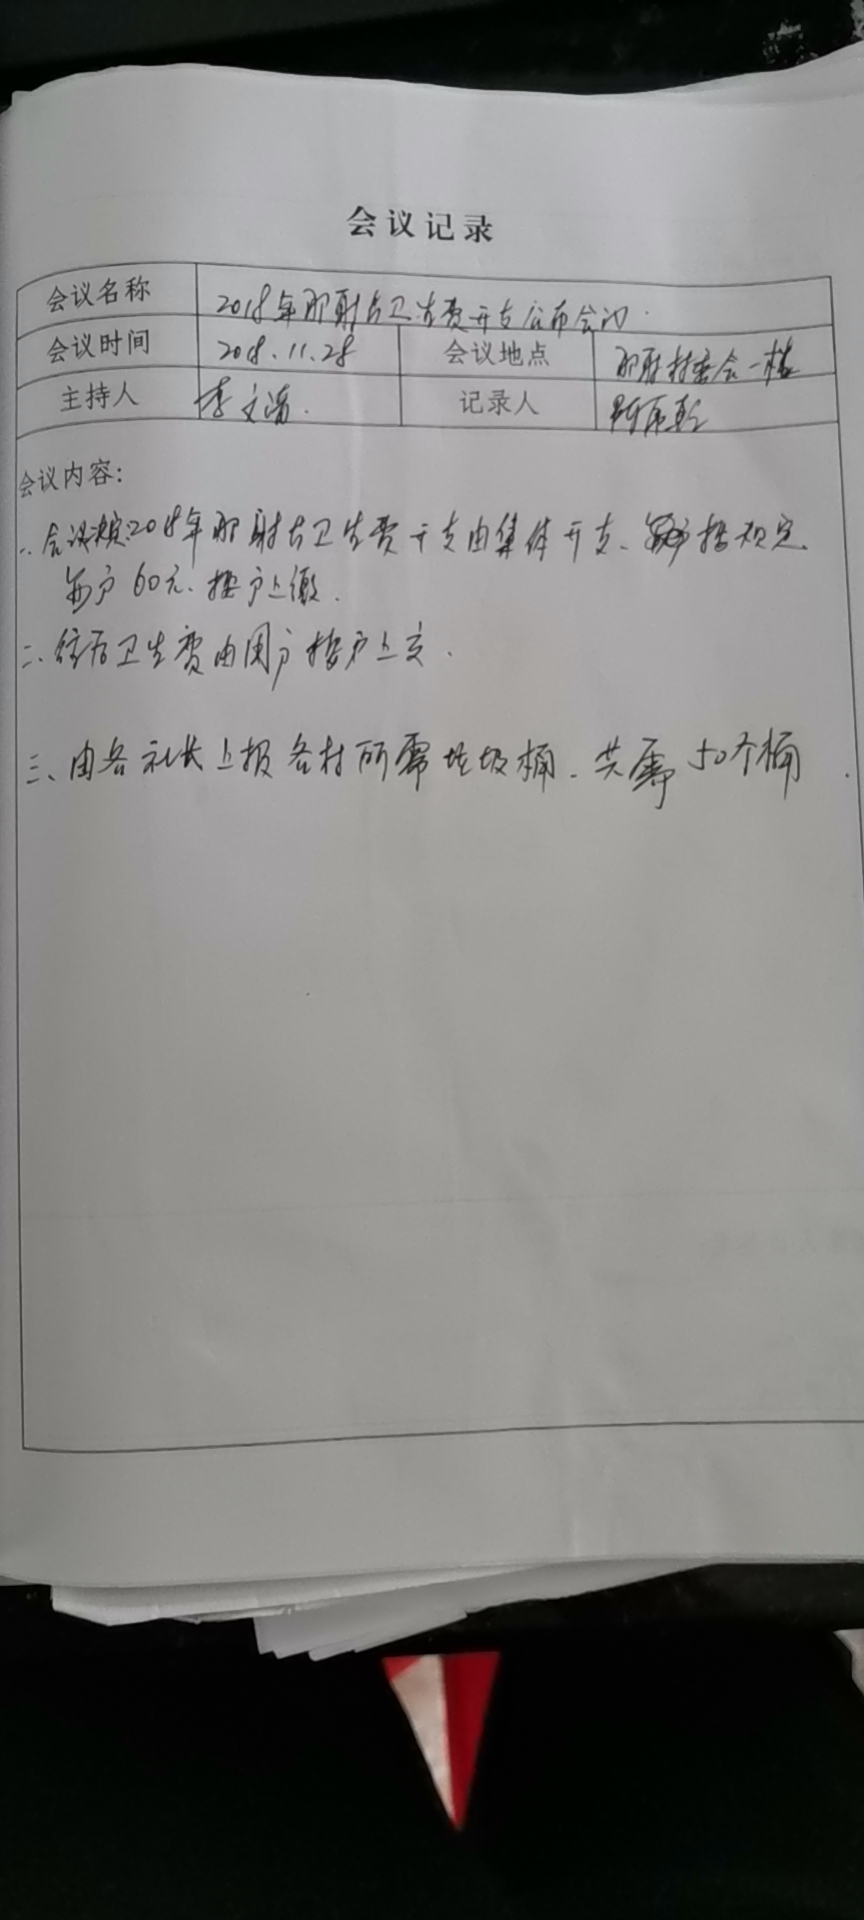 会议记录
会议名称 2018年那射村卫生费开支公布会议.
会议时间 2018.11.28 会议地点 那射村委会一楼
主持人 李文 记录人
会议内容:
一.会议决定2018年那射村卫生费开支由集体开支、按规定
每户60元.按户上缴.
二.卫生费由用户按户上交.
三、由各社长上报各村所需垃圾桶.共需50个桶.